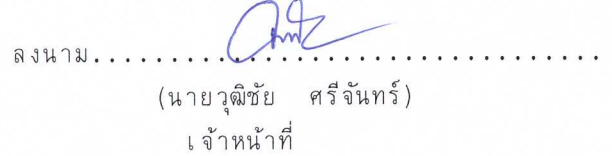 ลงนาม........................................
(นายวุฒิชัย ศรีจันทร์)
เจ้าหน้าที่